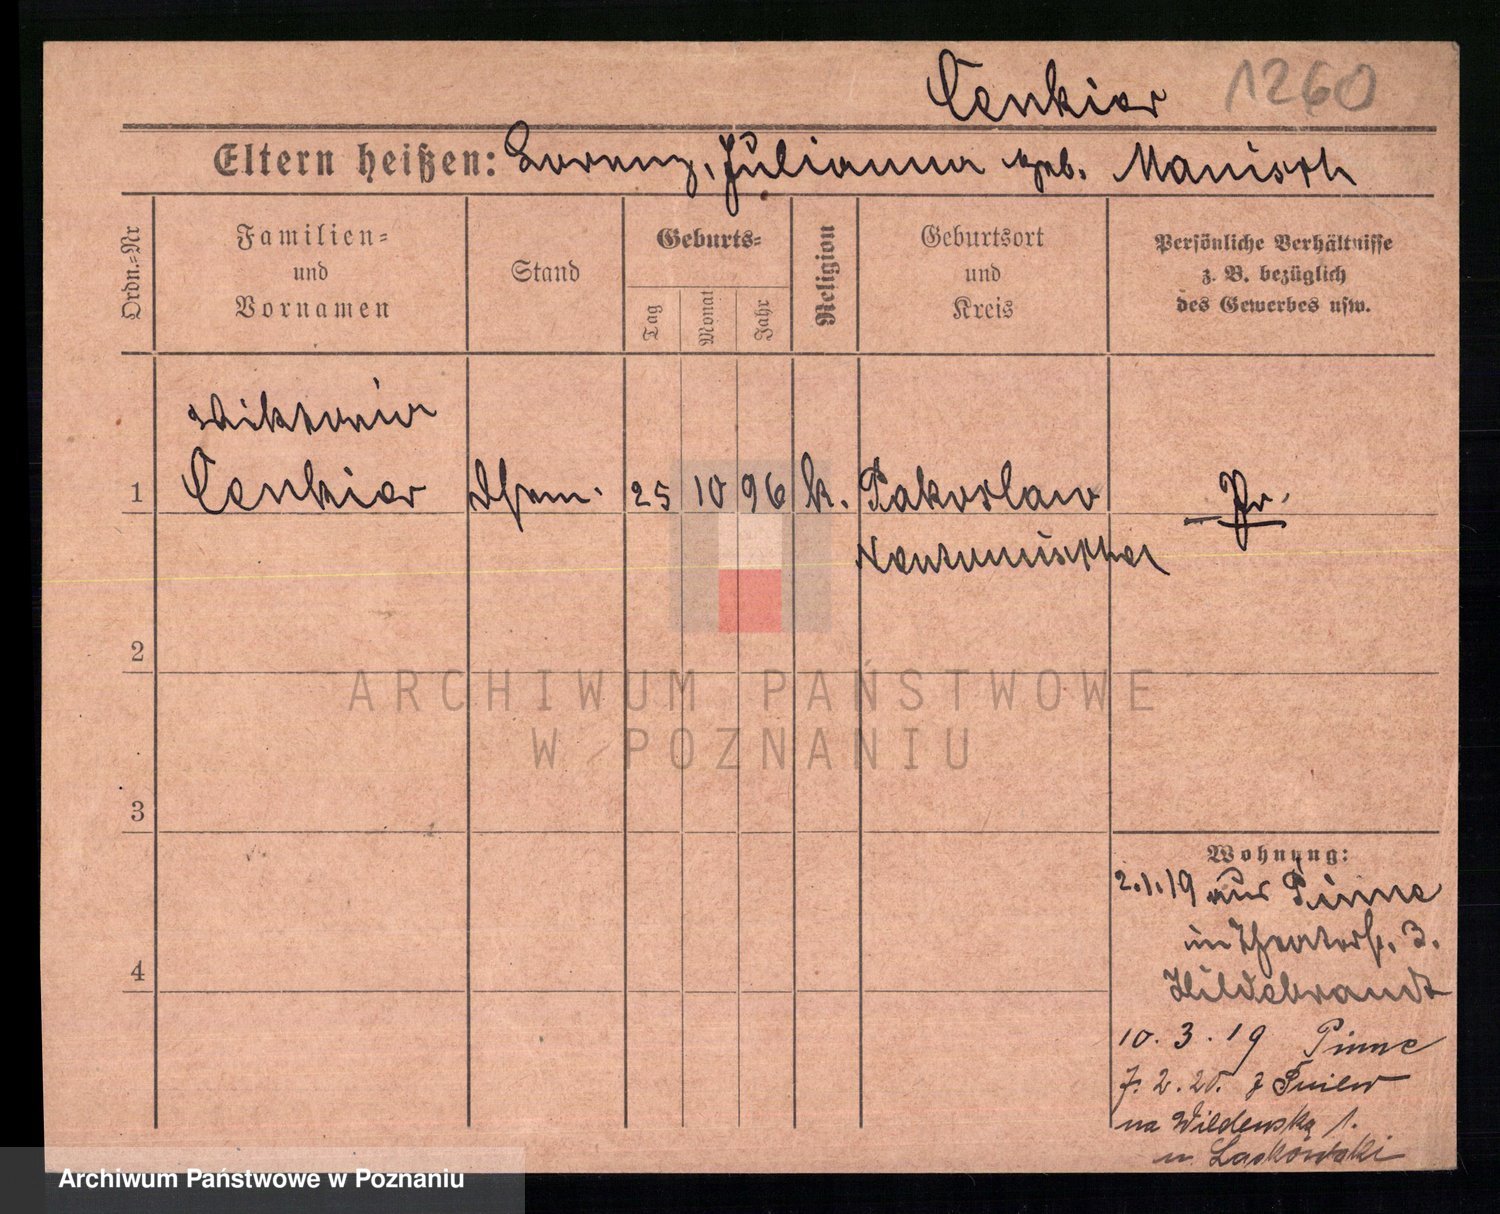 Cenkier 1260
Eltern heißen: Lorenz, Julianna geb. Manisch
Ordn.-Nr
Familien-
und
Vornamen
Stand
Geburts-
Tag
Monat
Jahr
Religion
Geburtsort
und
Kreis
Persönliche Verhältnisse
z. B. bezüglich
des Gewerbes usw.
Wiktoria
1 Cenkier 25 10 96 k. Pakoslaw Pr.
Neutomischel
2
ARCHIWUM PAŃSTWOWE
W POZNANIU
3
Wohnung:
2.1.19 aus Pinne
in Theaterstr. 3.
4
Hildebrandt
10.3.19 Pinne
7.2.20. z Pniew
na Wildenską 1.
u
Archiwum Państwowe w Poznaniu